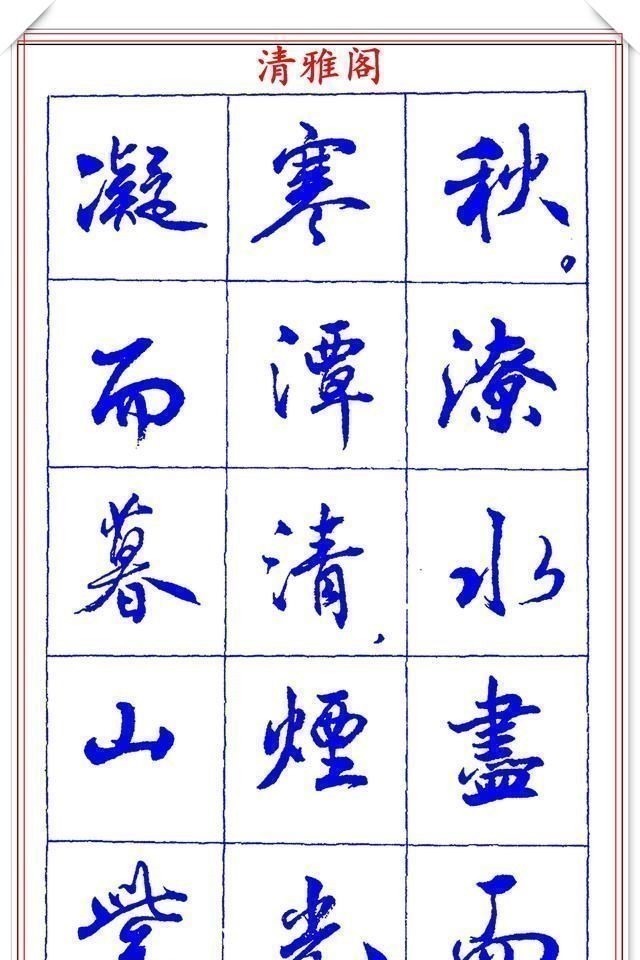 清雅阁
秋。潦水盡而
寒潭清，煙光
凝而暮山紫